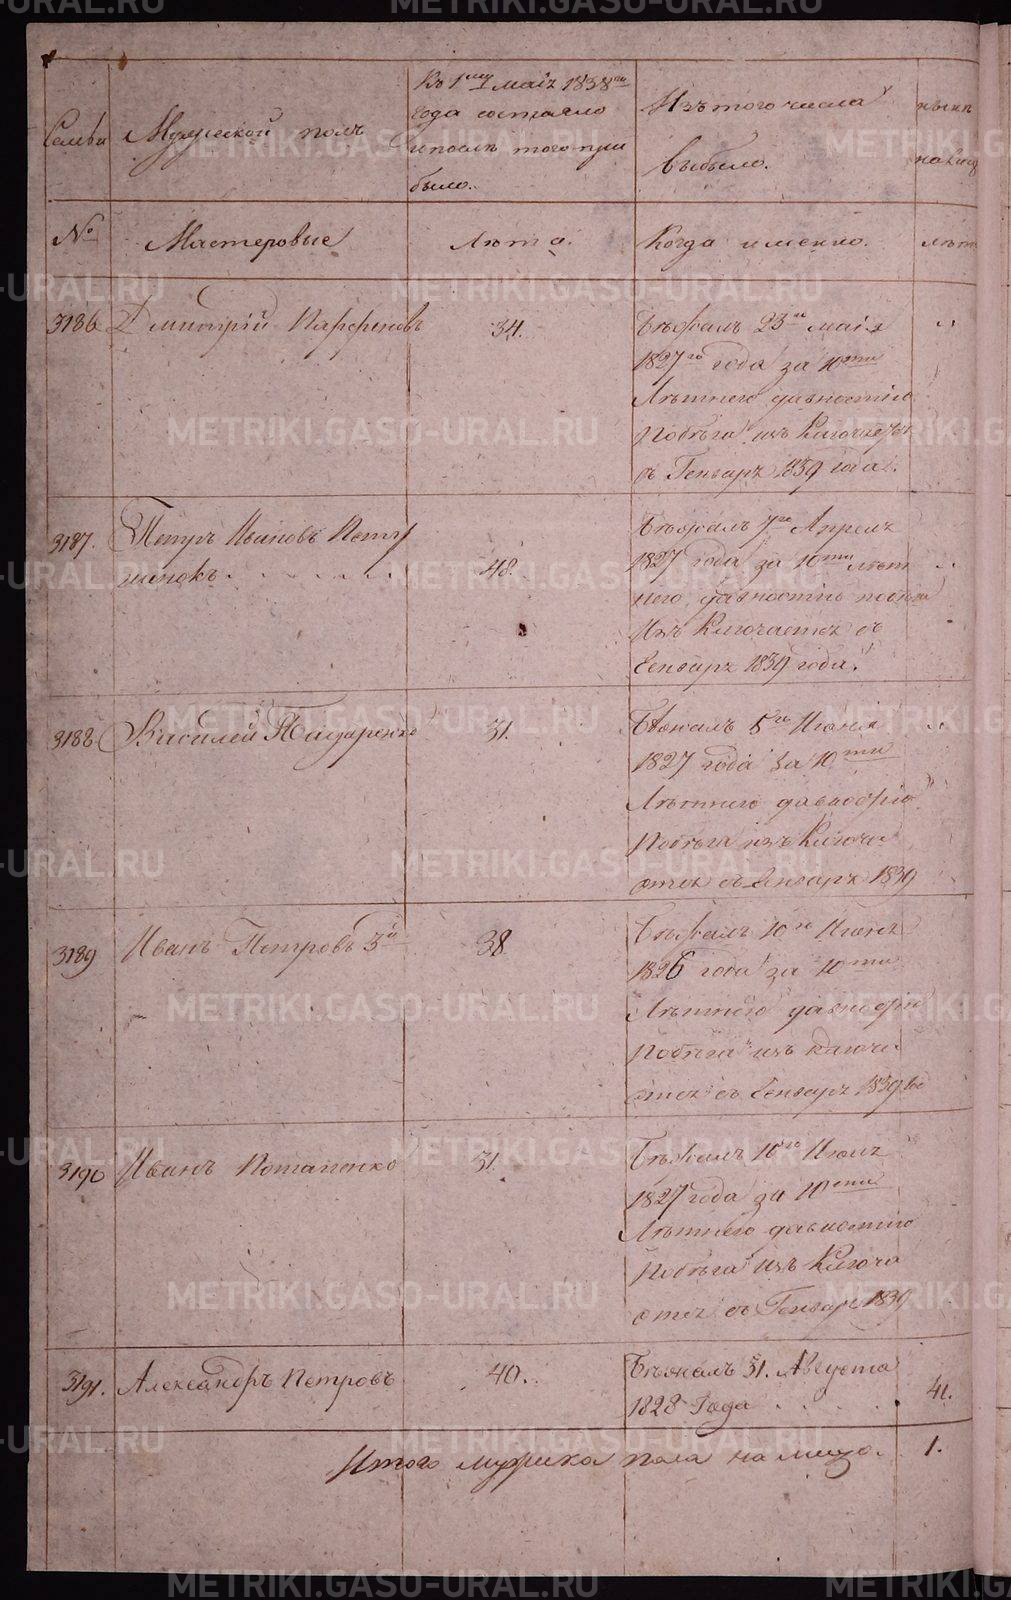 Семьи
Мужеской полъ
Къ 1му маiя 1838го
года состояло
и послѣ того при
было.
Изъ того числа
выбыло.
№
Мастеровые
Лѣта.
Когда именно.
лѣта
3186
Дмитрiй Парфеновъ
34.
Бѣжалъ 23го маiя
1827го года за 10ти
Лѣтнею давностiю
Побѣга изъ Ключаетъ
въ Генварѣ 1839 года.
3187.
Петръ Ивановъ Петру
шенокъ.
48.
Бѣжалъ 7го Апреля
1827 года за 10ти лѣт
нею давностiю побѣга
Изъ Ключается въ
Генварѣ 1839 года.
3188
Василей
31.
Бѣжалъ 5го Июня
1827 года за 10ти
Лѣтнею давностiю
Побѣга изъ Ключа
ется въ Генварѣ 1839
3189
Иванъ Петровъ 3й
38.
Бѣжалъ 10го
1826 года за 10ти
Лѣтнею давностiю
Побѣга изъ ключа
ется въ Генварѣ 1839
3190
Иванъ Потапенко
31.
Бѣжалъ 10го Июля
1827 года за 10ти
Лѣтнею давностiю
Побѣга изъ Ключа
ется въ Генварѣ 1839
3191.
Александръ Петровъ
40.
Бѣжалъ 31. Августа
1828 Года
41.
Итого мужеска пола на лицо.
1.
METRIKI.GASO-URAL.RU